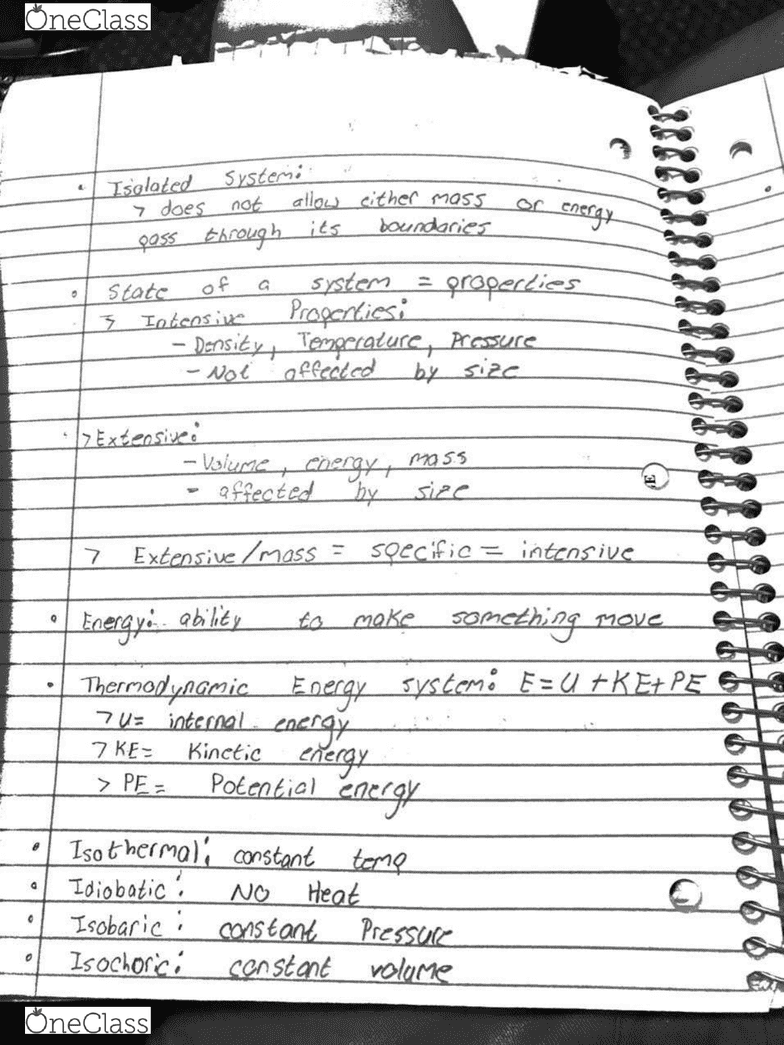 OneClass
• Isolated System:
> does not allow either mass or energy
pass through its boundaries
• State of a system = properties
> Intensive Properties:
- Density, Temperature, Pressure
- Not affected by size
> Extensive:
- Volume, energy, mass
- affected by size
> Extensive/mass = specific = intensive
• Energy: ability to make something move
• Thermodynamic Energy system: E = U + KE + PE
> U = internal energy
> KE = Kinetic energy
> PE = Potential energy
• Isothermal: constant temp
• Idiobatic: NO Heat
• Isobaric: constant Pressure
• Isochoric: constant volume
OneClass